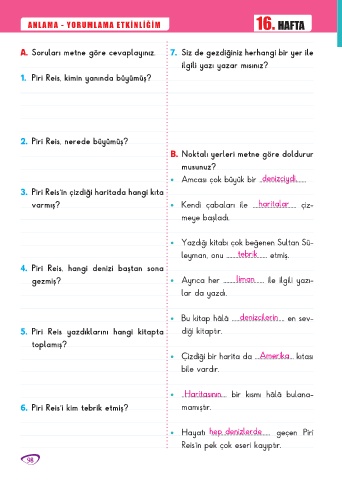 ANLAMA - YORUMLAMA ETKİNLİĞİM
16. HAFTA
A. Soruları metne göre cevaplayınız.
1. Piri Reis, kimin yanında büyümüş?
2. Piri Reis, nerede büyümüş?
3. Piri Reis'in çizdiği haritada hangi kıta
varmış?
4. Piri Reis, hangi denizi baştan sona
gezmiş?
5. Piri Reis yazdıklarını hangi kitapta
toplamış?
6. Piri Reis'i kim tebrik etmiş?
98
7. Siz de gezdiğiniz herhangi bir yer ile
ilgili yazı yazar mısınız?
B. Noktalı yerleri metne göre doldurur
musunuz?
• Amcası çok büyük bir ....denizciydi....
• Kendi çabaları ile ....haritalar.... çiz-
meye başladı.
• Yazdığı kitabı çok beğenen Sultan Sü-
leyman, onu ....tebrik.... etmiş.
• Ayrıca her ....liman.... ile ilgili yazı-
lar da yazdı.
• Bu kitap hâlâ ....denizcilerin.... en sev-
diği kitaptır.
• Çizdiği bir harita da ....Amerika.... kıtası
bile vardır.
• ....Haritasının.... bir kısmı hâlâ buluna-
mamıştır.
• Hayatı hep denizlerde.... geçen Piri
Reis'in pek çok eseri kayıptır.